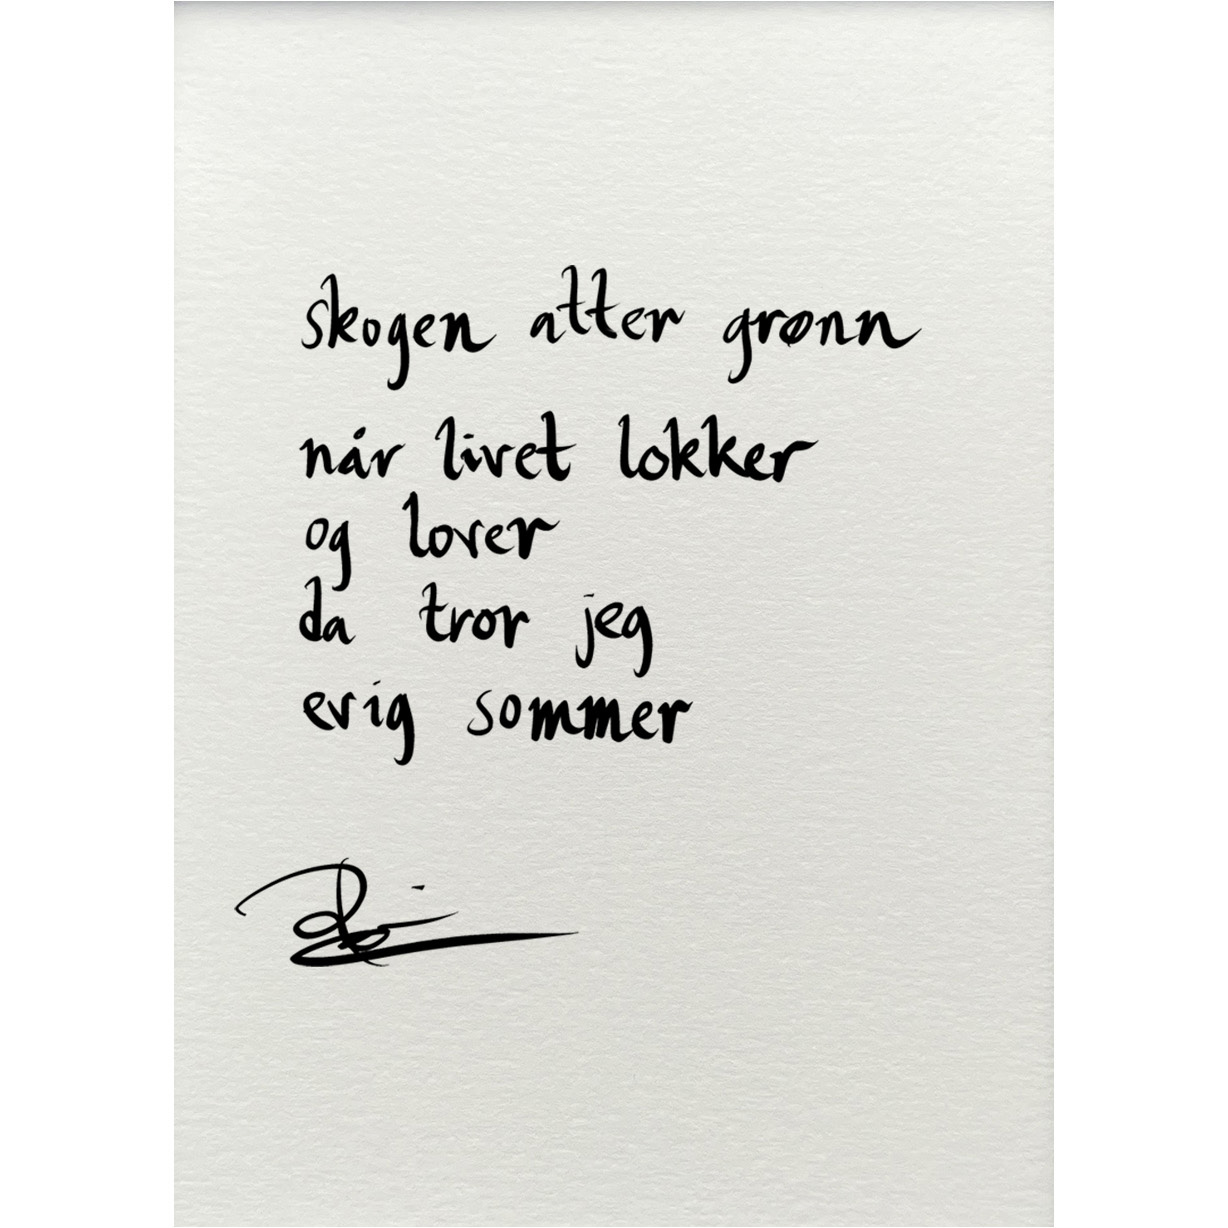 skogen atter grønn
når livet lokker
og lover
da tror jeg
evig sommer